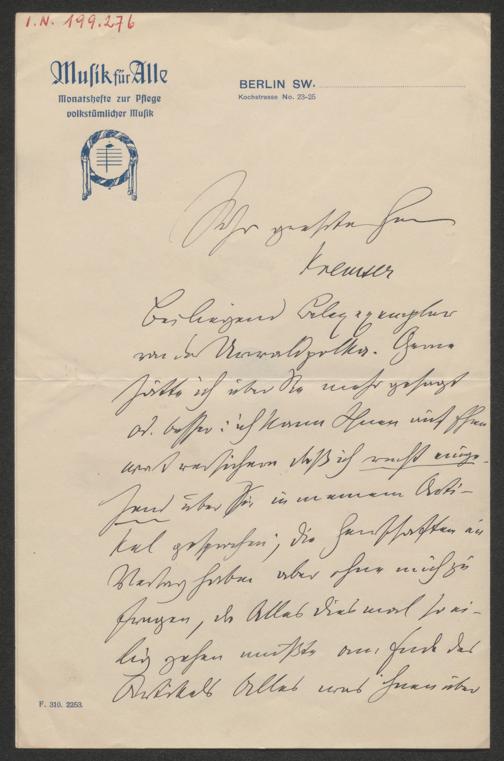 I.N. 199.276
Musik für Alle
Monatshefte zur Pflege
volkstümlicher Musik
BERLIN SW.
Kochstrasse No. 23-25
Sehr geehrter Herr
Kremser
Beiliegend Belegexemplar
von der Urwaldpolka. Gerne
hätte ich über Sie mehr gesagt
od. besser: ich kann Ihnen auf Ehren
wort versichern daß ich recht einge-
hend über Sie in meinem Arti-
kel gesprochen; die Herrschaften im
Verlag haben aber ohne mich zu
fragen, da Alles diesmal so ei-
lig gehen mußte am Ende des
Artikels Alles was ihnen über
F. 310. 2253.